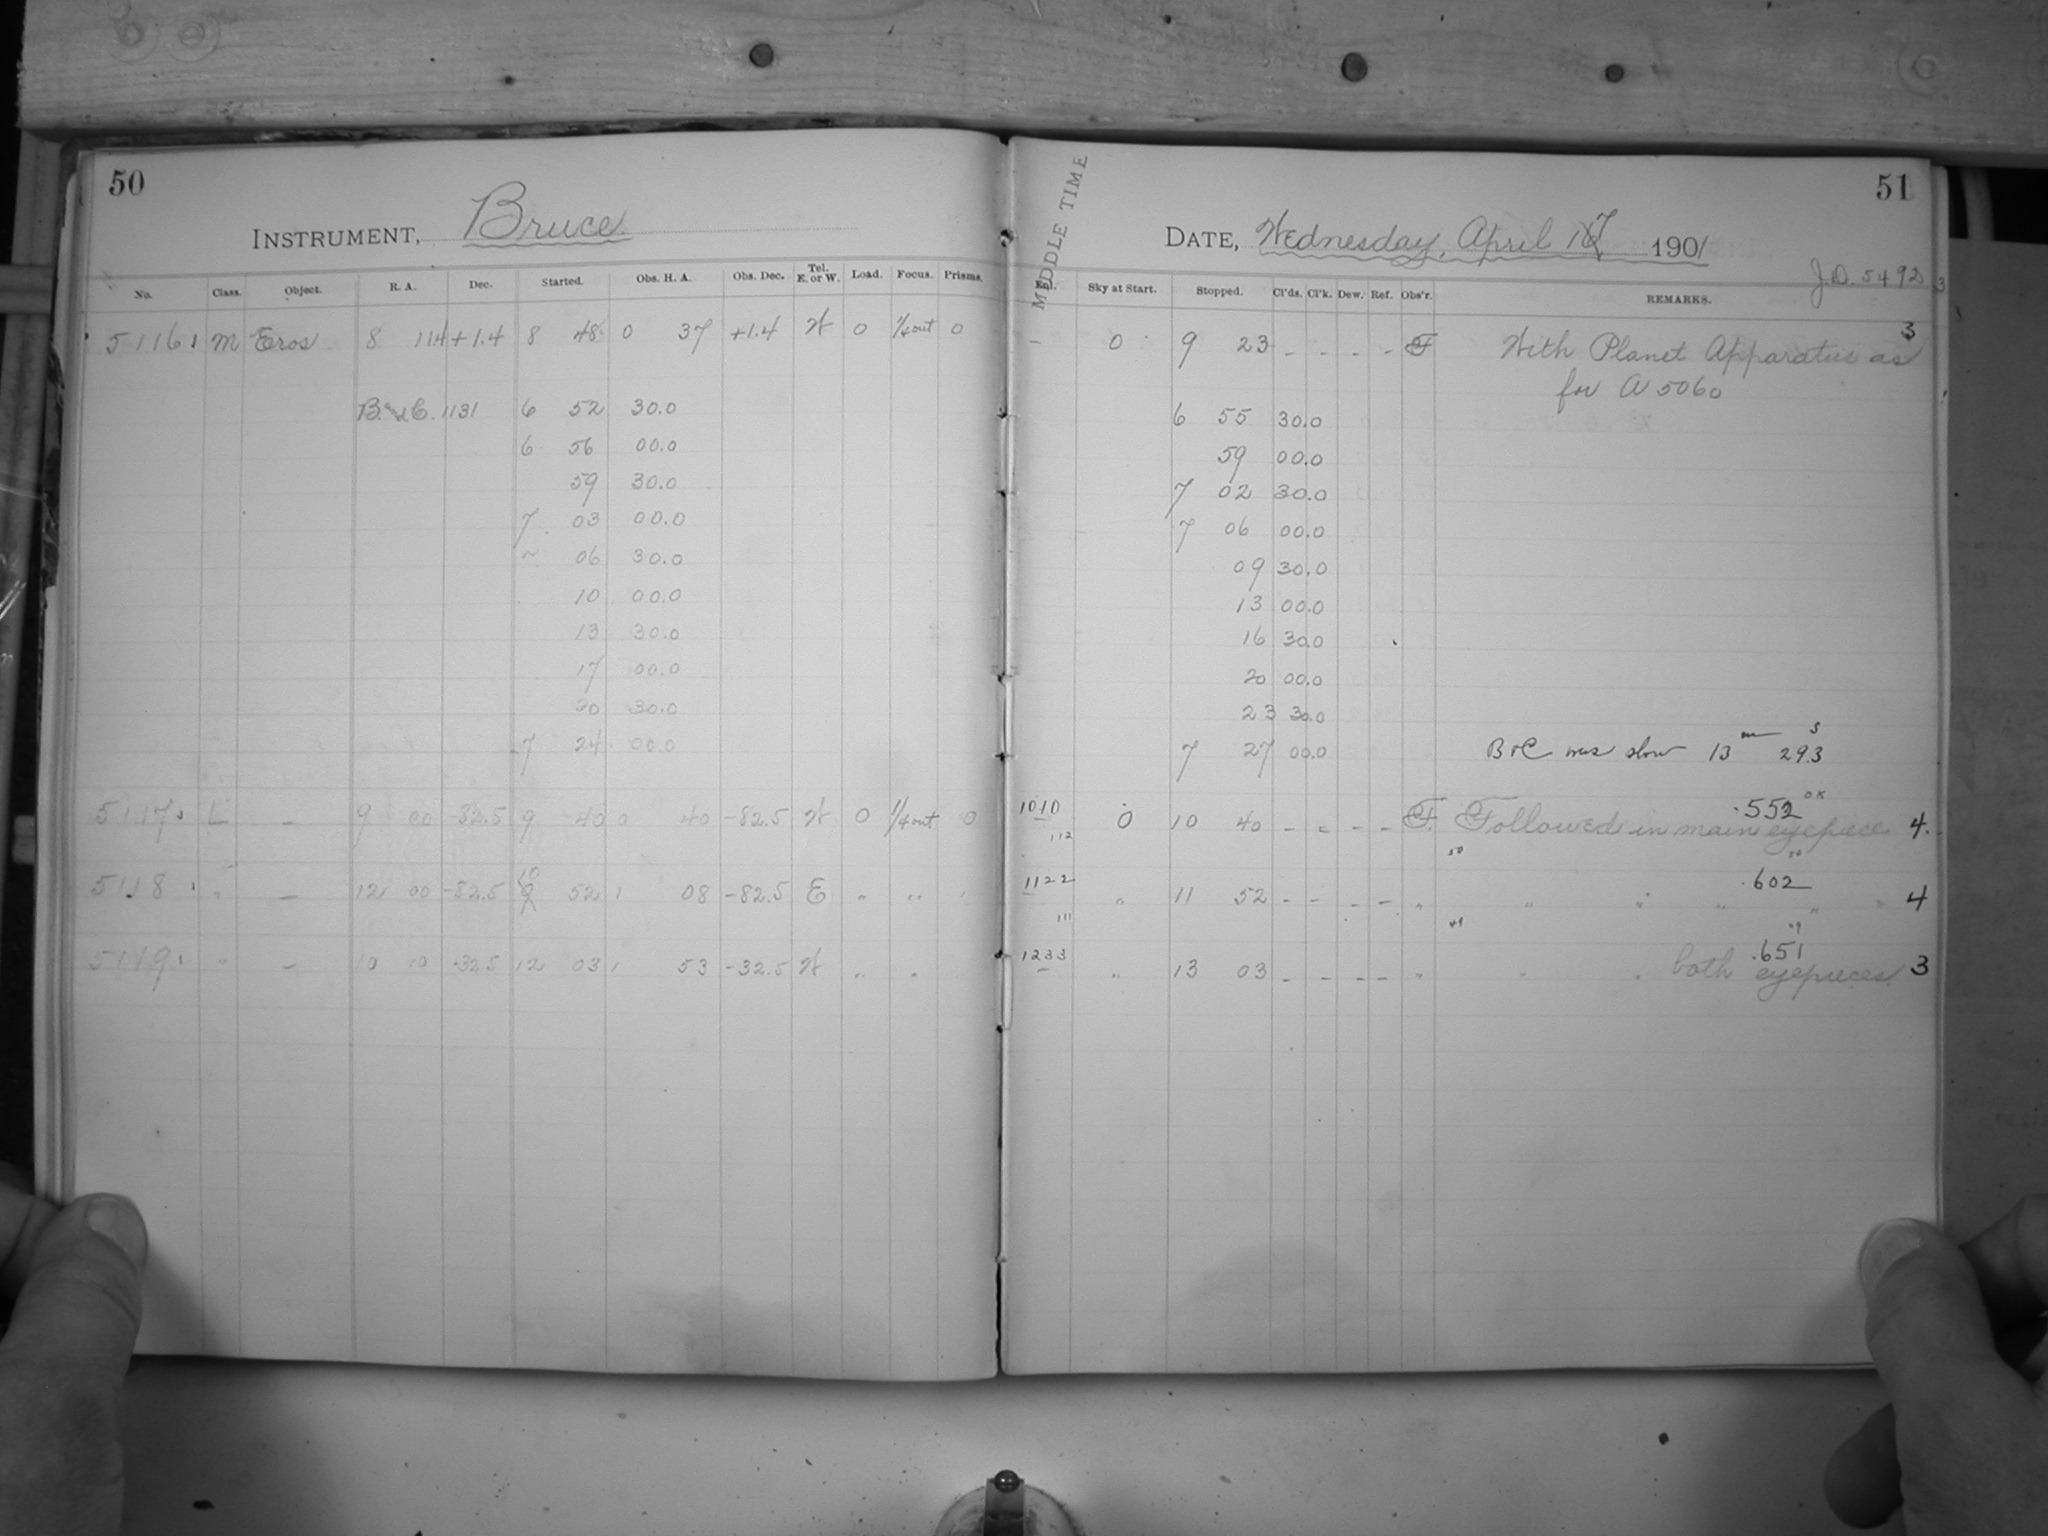 50
INSTRUMENT, Bruce
No. Class. Object. R. A. Dec. Started. Obs. H. A. Obs. Dec. Tel. E. or W. Load. Focus. Prisms.
5116 M Eros 8 114 +1.4 8 48 0 37 +1.4 W 0 1/4 out 0
B. and C. 1131 6 52 30.0
6 56 00.0
59 30.0
7 03 00.0
" 06 30.0
10 00.0
13 30.0
17 00.0
20 30.0
7 24 00.0
5117 L - 9 00 -82.5 9 40 0 40 -82.5 W 0 1/4 out 0
5118 " - 12 00 -82.5 10 52 1 08 -82.5 E " " "
5119 " - 10 10 -32.5 12 03 1 53 -32.5 W " "
51
MIDDLE TIME
DATE, Wednesday, April 17 1901
J.D. 5492
Sky at Start. Stopped. Cl'ds. Cl'k. Dew. Ref. Obs'r. REMARKS.
- 0 9 23 - - - - F With Planet Apparatus as 3
for A 5060
6 55 30.0
59 00.0
7 02 30.0
7 06 00.0
09 30.0
13 00.0
16 30.0
20 00.0
23 30.0
7 27 00.0 B & C was slow 13 m 29.3 s
.552 OK
1010 0 10 40 - - - - F. Followed in main eyepiece 4.
112 50 50
.602
1122 " 11 52 - - - - " " " " " " 4
111 49 49
.651
1233 " 13 03 - - - - " " " both eyepieces. 3